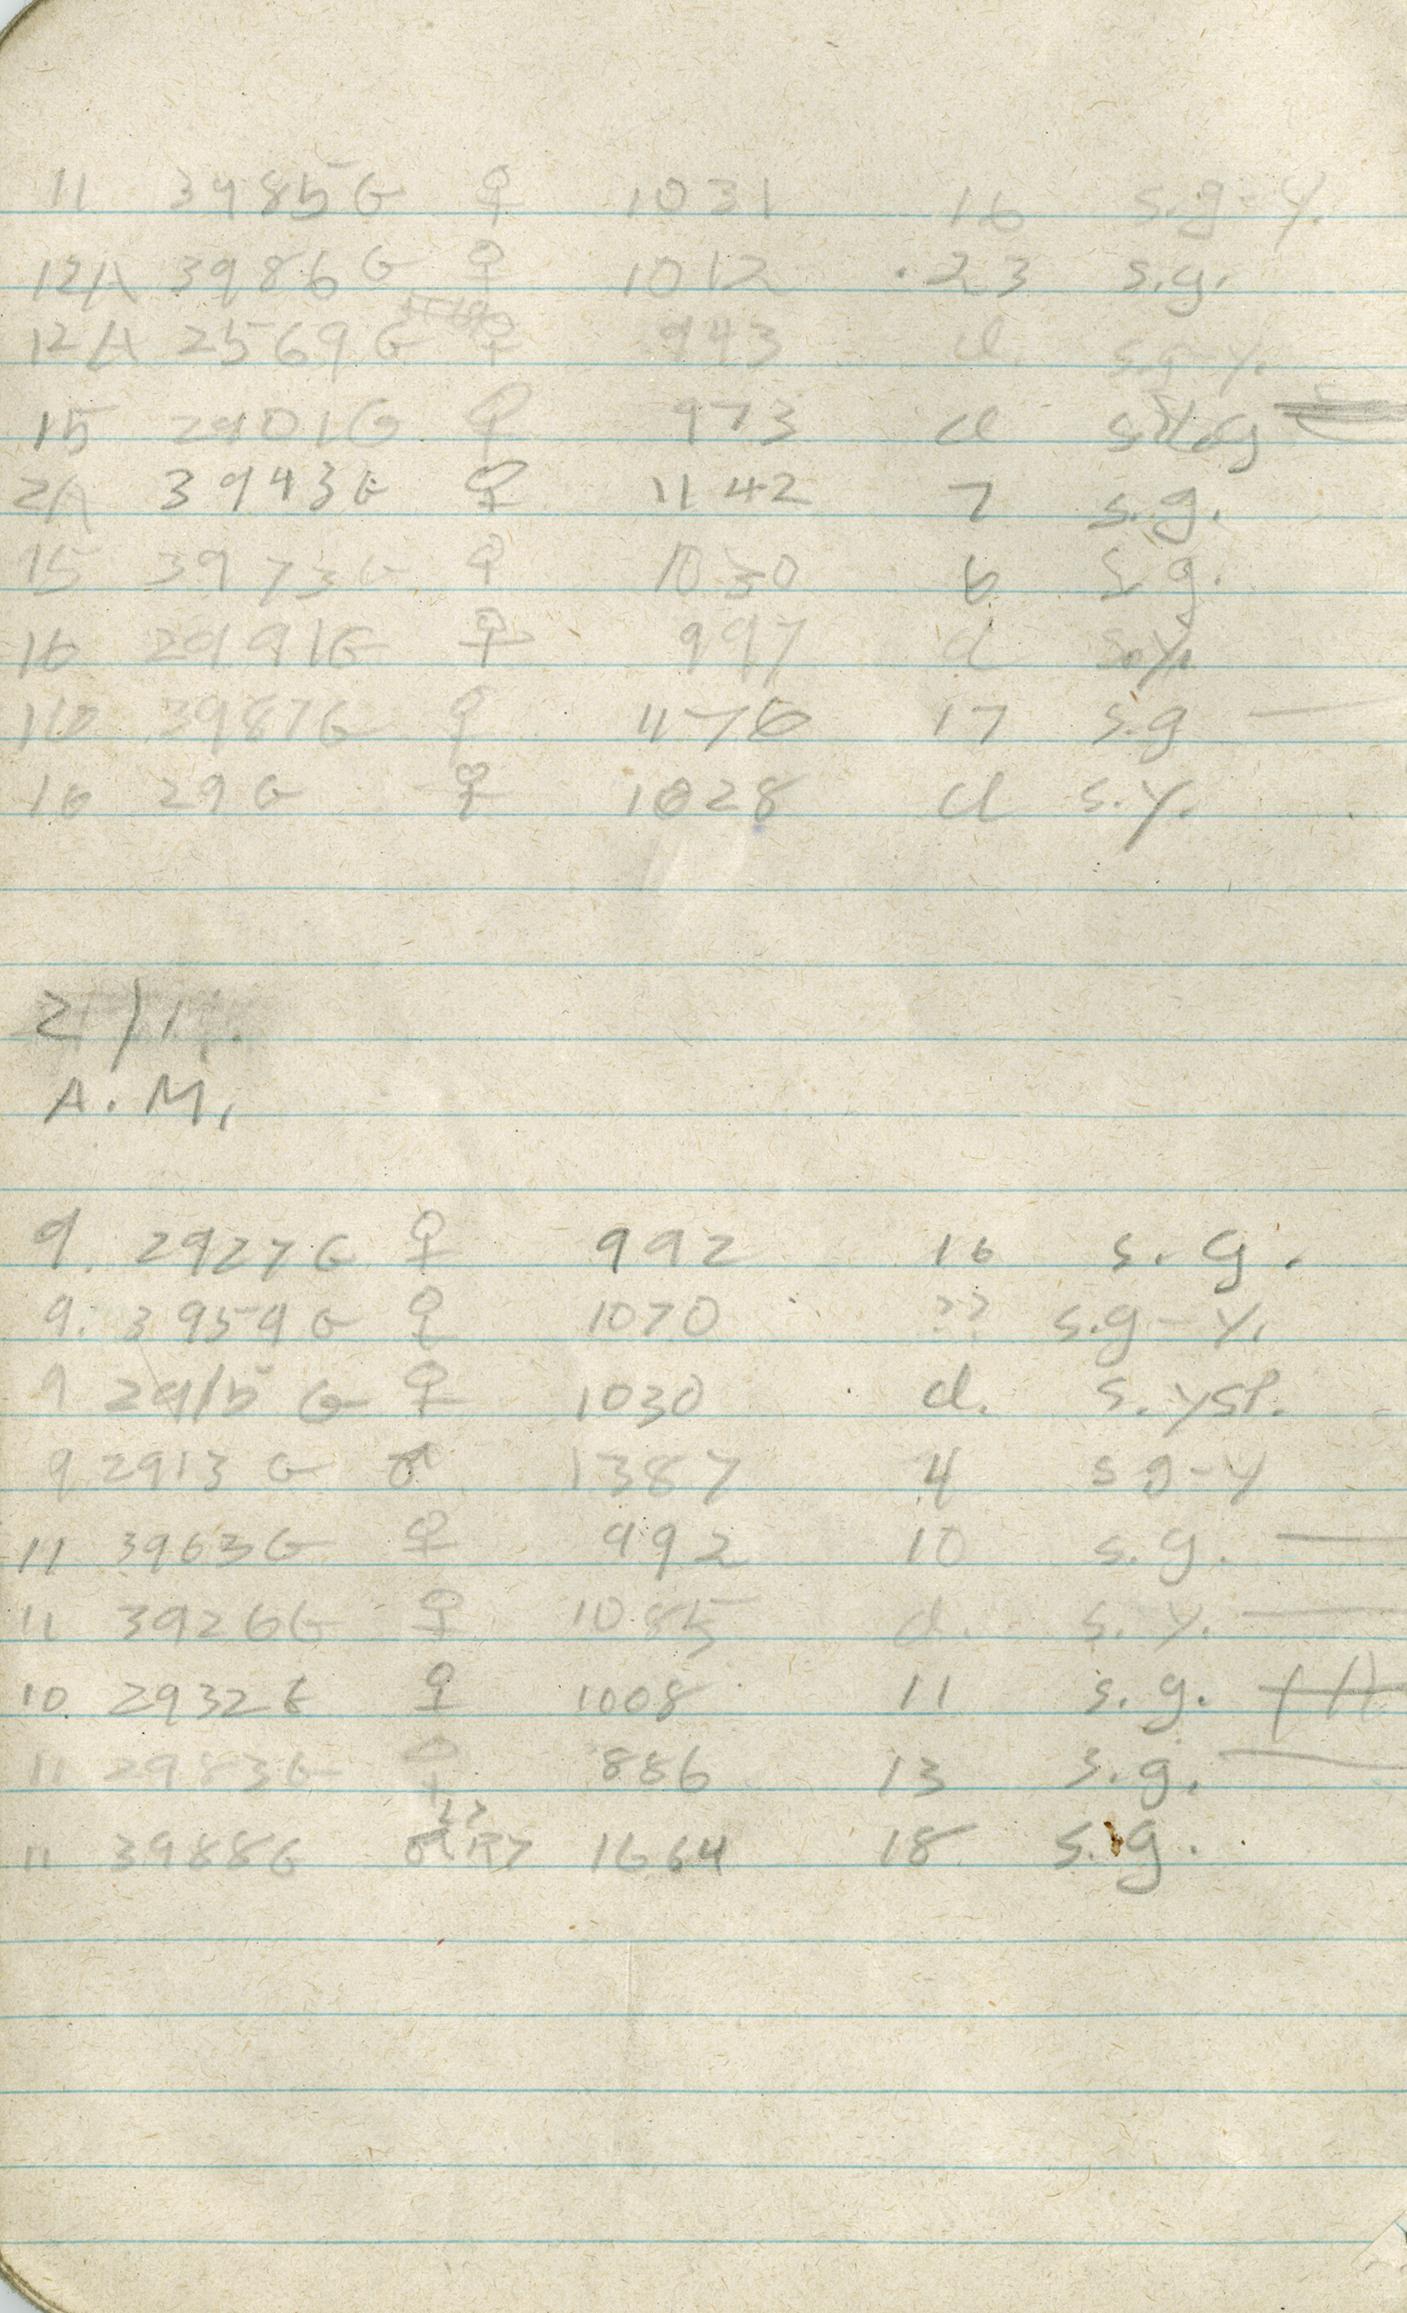 11 3985G ♀ 1031 16 s.g-y.
12A 3986G ♀ 1012 .23 s.g.
12A 2569G ♀ 943 d. s.g-y.
15 2901G ♀ 973 d
2A 3943G ♀ 1142 7 s.g.
15 3973G ♀ 1030 6 s.g.
16 2991G ♀ 997 d s.y.
16 3987G ♀ 1176 17 s.g —
16 29G ♀ 1028 d s.y.
21/1.
A.M.
9. 2927G ♀ 992 16 s.g.
9. 3959G ♀ 1070 ?? s.g-y.
9 2915G ♀ 1030 d. s.ysp.
9 2913G ♂ 1387 4 s g-y
11 3963G ♀ 992 10 s.g. —
11 3926G ♀ 1085 d. s.y. —
10. 2932G ♀ 1008 11 s.g.
11 2983G ♀ 886 13 s.g. —
11 3988G ♂ 1664 18 s.g.